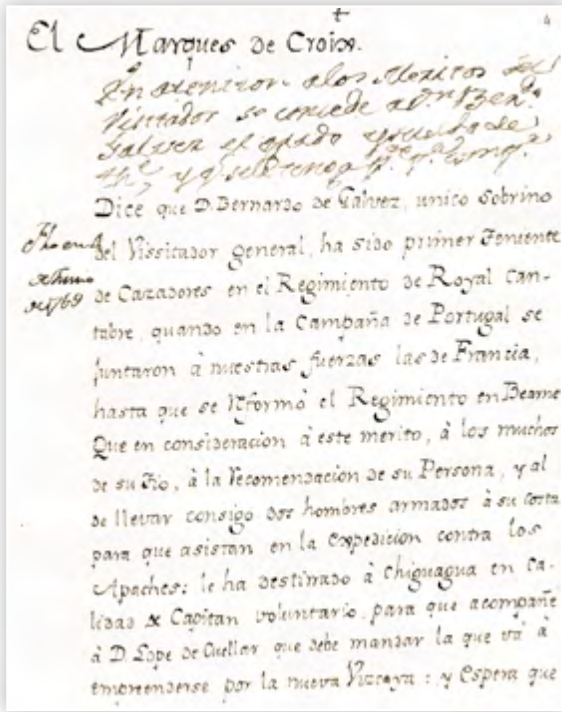 4
El Marques de Croix.
En atencion a los Meritos del
Visitador se concede a Dn Berdo
Galvez el grado y sueldo de
Dice que D. Bernardo de Galvez, unico sobrino
del Vissitador general, ha sido primer Teniente
de Cazadores en el Regimiento de Royal Can-
tabre, quando en la Campaña de Portugal se
juntaron à nuestras fuerzas las de Francia,
hasta que se reformò el Regimiento en Bearne
Que en consideracion à este merito, à los muchos
de su Tio, à la recomendacion de su Persona, y al
de llevar consigo dos hombres armados à su costa
para que asistan en la expedicion contra los
Apaches: le ha destinado à Chiguagua en Ca-
lidad de Capitan voluntario, para que acompañe
à D. Lope de Cuellar que debe mandar la que và à
emprenderse por la nueva Vizcaya: y espera que
de Junio
de 1769